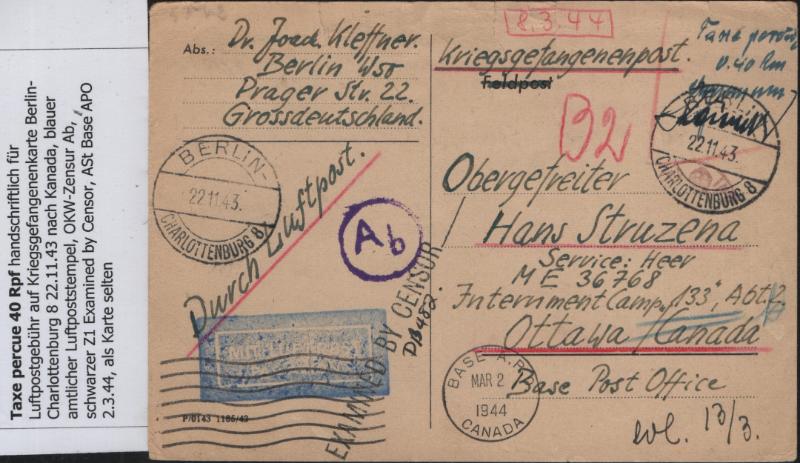 Taxe percue 40 Rpf handschriftlich für
Luftpostgebühr auf Kriegsgefangenenkarte Berlin-
Charlottenburg 8 22.11.43 nach Kanada, blauer
amtlicher Luftpoststempel, OKW-Zensur Ab,
schwarzer Z1 Examined by Censor, ASt Base APO
2.3.44, als Karte selten
Abs.: Dr. Joach. Kleffner.
Berlin W50
Prager Str. 22.
Grossdeutschland.
BERLIN-
22.11.43.
CHARLOTTENBURG 8
Durch Luftpost.
Ab
EXAMINED BY CENSOR
DB482
P/0143 1186/42
8.3.44
Kriegsgefangenenpost.
Feldpost
Taxe perçue
0.40 Rm
B2
BERLIN-
22.11.43.
CHARLOTTENBURG 8
Obergefreiter
Hans Struzena
Service: Heer
ME 36768
Internment Camp "133", Abt.
Ottawa / Canada
Base Post Office
BASE A.P.O.
MAR 2
1944
CANADA
13/3.